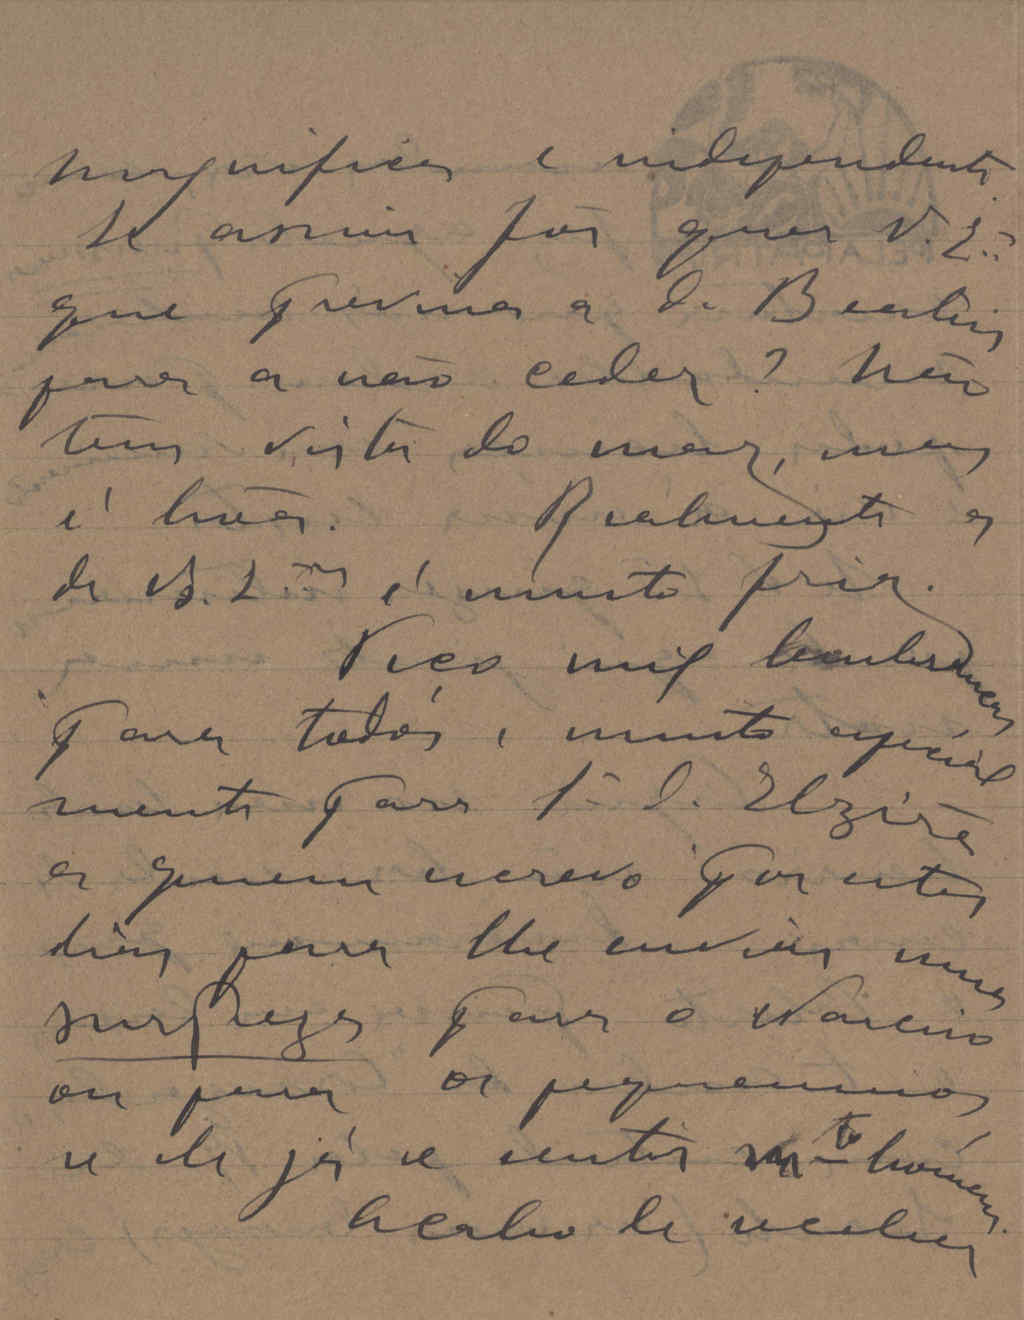 magnifica e independente.
Se assim fôr quer V. Ex.ª
que previna a D. Beatriz
para a não ceder? Não
tem vista do mar, mas
é bôa. Realmente a
de V. Ex.as é muito fria.
Peço mil lembranças
para todos e muito especial
mente para S.ª D. Elzira
a quem escrevo por estes
dias para lhe enviar uma
surpreza para o Narciso
ou para os pequeninos
se ele já se sentir m.to homem.
Acabo de receber